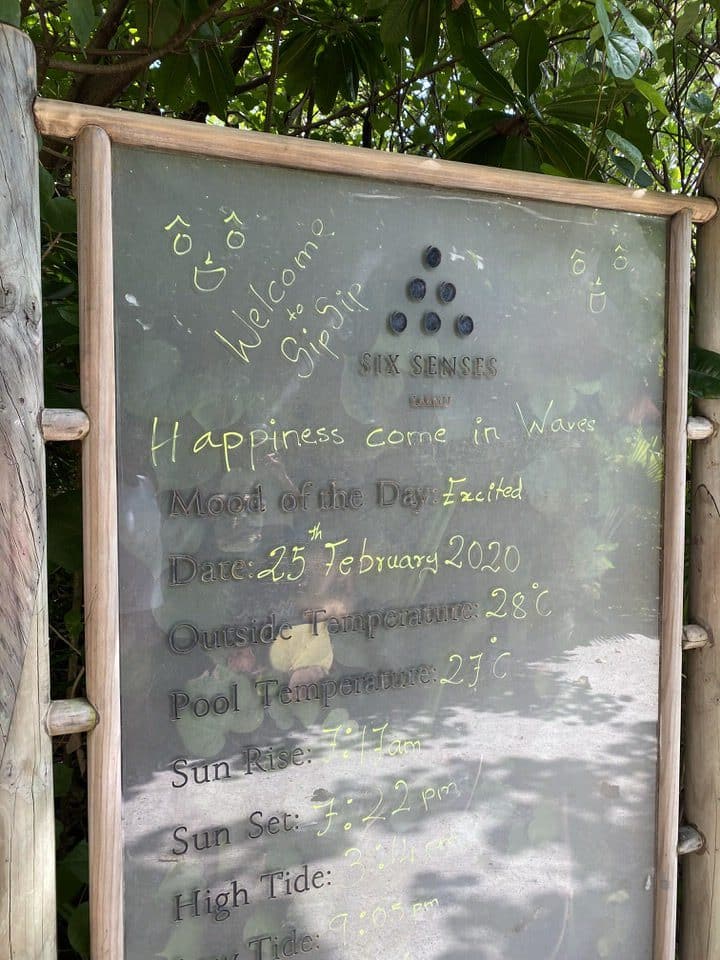 Welcome
to
SipSip
SIX SENSES
LAAMU
Happiness come in Waves
Mood of the Day: Excited
Date: 25th February 2020
Outside Temperature: 28°C
Pool Temperature: 27°C
Sun Rise: 7:17am
Sun Set: 7:22 pm
High Tide:
Tide: 9:05pm